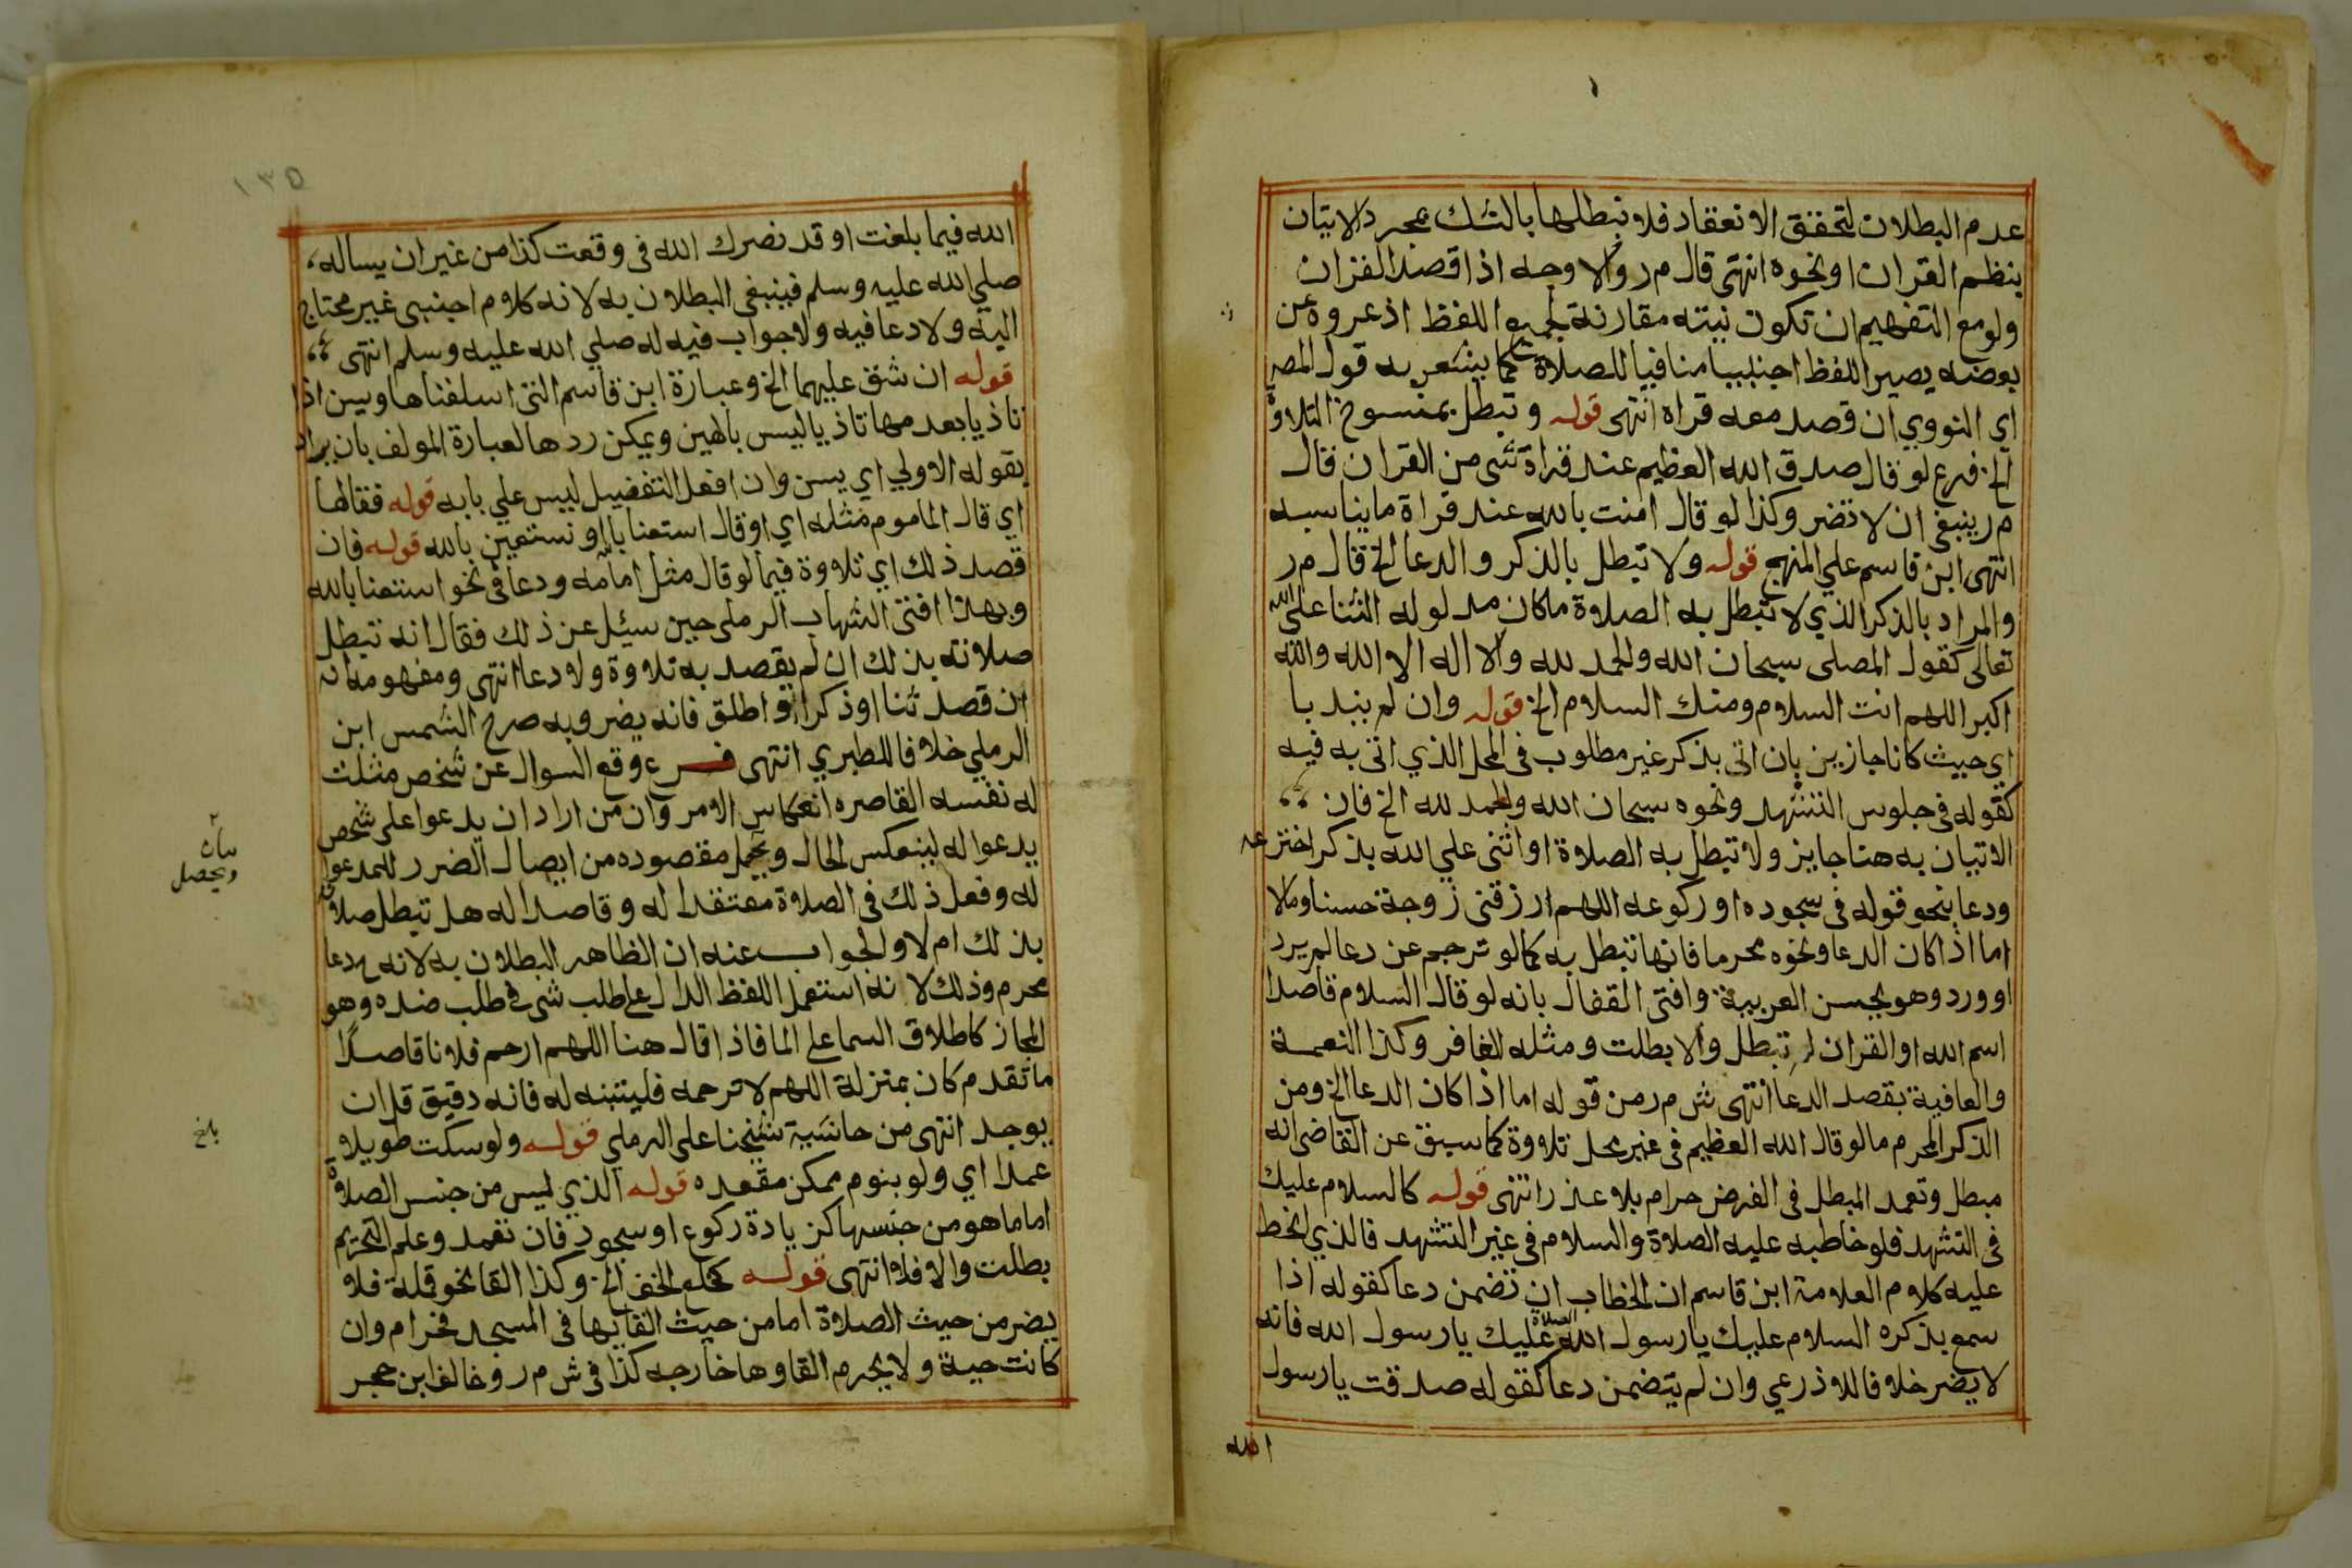 عدم البطلان لتحقق الانعقاد فلا نبطلها بالشك بمجرد الاتيان
بنظم القران او نحوه انتهى قال م ر والاوجه اذا قصد القران
ولو مع التفهيم ان تكون نيته مقارنة لجميع اللفظ اذ عروه عن
بعضه يصير اللفظ اجنبيا منافيا للصلاة كما يشعر به قول المص
اي النووي ان قصد معه قراة انتهى قوله وتبطل بمنسوخ التلاوة
الخ فرع لو قال صدق الله العظيم عند قراة شى من القران قال
م ر ينبغي ان لا تضر وكذا لو قال امنت بالله عند قراة ما يناسبه
انتهى ابن قاسم علي المنهج قوله ولا تبطل بالذكر والدعا الخ قال م ر
والمراد بالذكر الذي لا تبطل به الصلاة ما كان مدلوله الثنا على الله
تعالى كقول المصلى سبحان الله والحمد لله ولا اله الا الله والله
اكبر اللهم انت السلام ومنك السلام الخ قوله وان لم يندبا
اي حيث كانا جازين بان اتى بذكر غير مطلوب في المحل الذي اتى به فيه
كقوله في جلوس التشهد ونحوه سبحان الله والحمد لله الخ فان
الاتيان به هنا جايز ولا تبطل به الصلاة او اثنى علي الله بذكر اخترعه
ودعا بنحو قوله في سجوده او ركوعه اللهم ارزقني زوجة حسنا ومالا
اما اذا كان الدعا ونحوه محرما فانها تبطل به كما لو ترجم عن دعا لم يرد
او ورد وهو يحسن العربية وافتى القفال بانه لو قال السلام قاصدا
اسم الله او القران لم تبطل والا بطلت ومثله الغافر وكذا النعمة
والعافية بقصد الدعا انتهى ش م ر من قوله اما اذا كان الدعا الخ ومن
الذكر المحرم ما لو قال الله العظيم في غير محل تلاوة كما سبق عن القاضى انه
مبطل وتعمد المبطل في الفرض حرام بلا عذر انتهى قوله كالسلام عليك
في التشهد فلو خاطبه عليه الصلاة والسلام في غير التشهد فالذي انحط
عليه كلام العلامة ابن قاسم ان الخطاب ان تضمن دعا كقوله اذا
سمع بذكره السلام عليك يا رسول الله الصلاة عليك يا رسول الله فانه
لا يضر خلافا للاذرعي وان لم يتضمن دعا كقوله صدقت يا رسول
الله
١٣٥
الله فيما بلغت او قد نصرك الله في وقعت كذا من غير ان يساله
صلي الله عليه وسلم فينبغي البطلان به لانه كلام اجنبي غير محتاج
اليه ولا دعا فيه ولا جواب فيه له صلي الله عليه وسلم انتهى
قوله ان شق عليهما الخ وعبارة ابن قاسم التى اسلفناها ويسن اذا
تاذيا بعدمها تاذيا ليس بالهين ويمكن ردها لعبارة المولف بان يراد
بقوله الاولي اي يسن وان افعل التفضيل ليس علي بابه قوله فقالها
اي قال الماموم مثله اي او قال استعنا بالله او نستعين بالله قوله فان
قصد ذلك اي تلاوة فيما لو قال مثل امامه ودعا في نحو استعنا بالله
وبهذا افتى الشهاب الرملى حين سئل عن ذلك فقال انه تبطل
صلاته بذلك ان لم يقصد به تلاوة ولا دعا انتهى ومفهومه انه
ان قصد ثنا او ذكرا او اطلق فانه يضر وبه صرح الشمس ابن
الرملي خلافا للطبري انتهى فرع وقع السوال عن شخص مثلت
له نفسه القاصره انعكاس الامر وان من اراد ان يدعوا على شخص
يدعوا له لينعكس الحال ويحصل مقصوده من ايصال الضرر للمدعوا
له وفعل ذلك في الصلاة معتقدا له وقاصدا له هل تبطل صلاته
بذلك ام لا والجواب عنه ان الظاهر البطلان به لانه دعا
محرم وذلك لانه استعمل اللفظ الدال على طلب شى في طلب ضده وهو
المجاز كاطلاق السما على الما فاذا قال هنا اللهم ارحم فلانا قاصدا
ما تقدم كان بمنزلة اللهم لا ترحمه فليتنبه له فانه دقيق قل ان
يوجد انتهى من حاشية شيخنا على الرملي قوله ولو سكت طويلا
عمدا اي ولو بنوم ممكن مقعده قوله الذي ليس من جنس الصلاة
اما ما هو من جنسها كزيادة ركوع او سجود فان تعمد وعلم التحريم
بطلت والا فلا انتهى قوله كخلع الخف الخ وكذا القا نحو قملة فلا
يضر من حيث الصلاة اما من حيث القايها في المسجد فحرام وان
كانت حية ولا يحرم القاوها خارجه كذا في ش م ر وخالف ابن حجر
بيان
ويحصل
بلغ